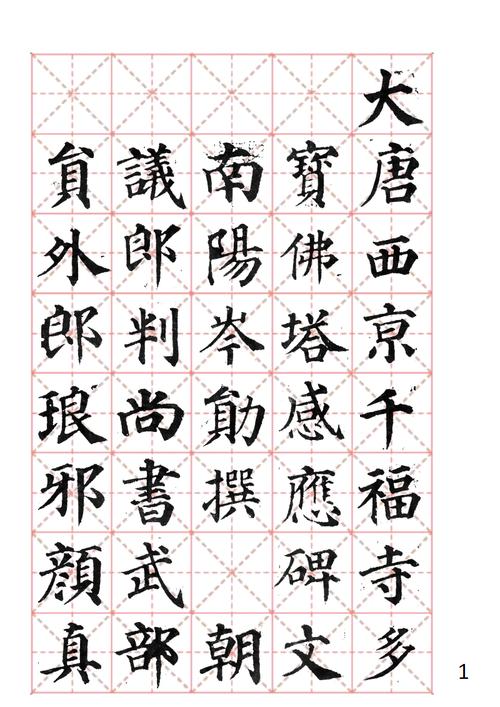 大唐西亰千福寺多
寶佛塔感應碑文
南陽岑勛撰 朝
議郎判尚書武部
貟外郎琅邪顔真
1